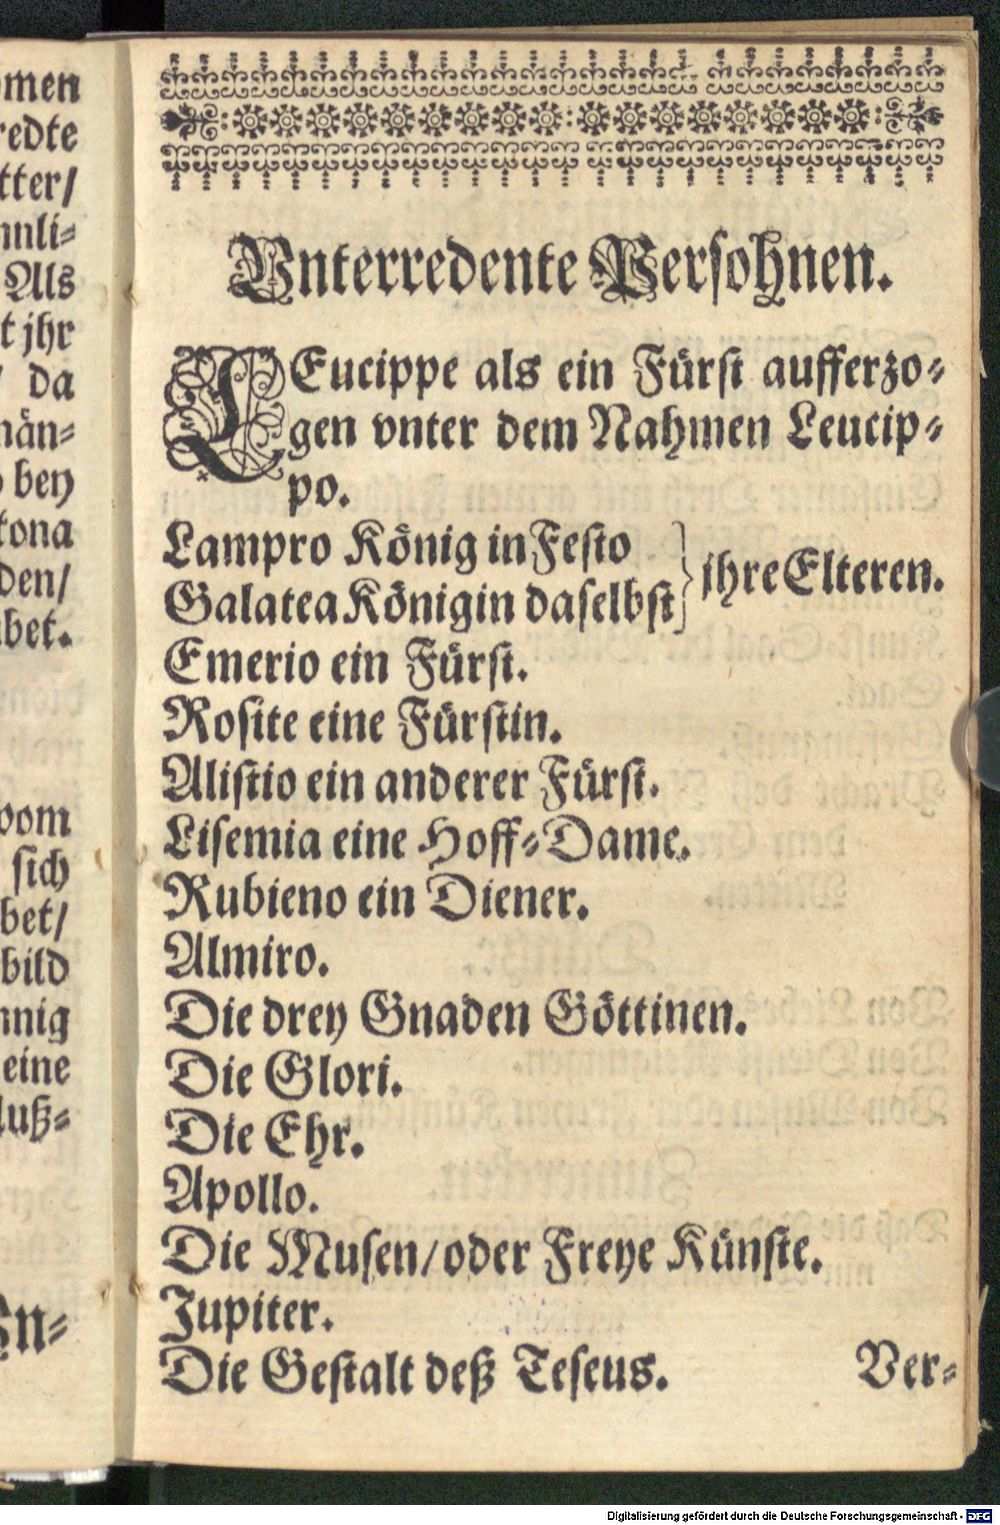 ömen
redte
tter/
nnli⸗
Als
t jhr
/ da
nän⸗
bey
tona
den/
bet.
vom
sich
bet/
bild
nnig
eine
luß⸗
An⸗
Vnterredente Persohnen.
LEucippe als ein Fürst aufferzo⸗
gen vnter dem Nahmen Leucip⸗
po.
Lampro König in Festo
Galatea Königin daselbst
jhre Elteren.
Emerio ein Fürst.
Rosite eine Fürstin.
Alistio ein anderer Fürst.
Lisemia eine Hoff⸗Dame.
Rubieno ein Diener.
Almiro.
Die drey Gnaden Göttinen.
Die Glori.
Die Ehr.
Apollo.
Die Musen/ oder Freye Künste.
Jupiter.
Die Gestalt deß Teseus.
Ver⸗
Digitalisierung gefördert durch die Deutsche Forschungsgemeinschaft - DFG